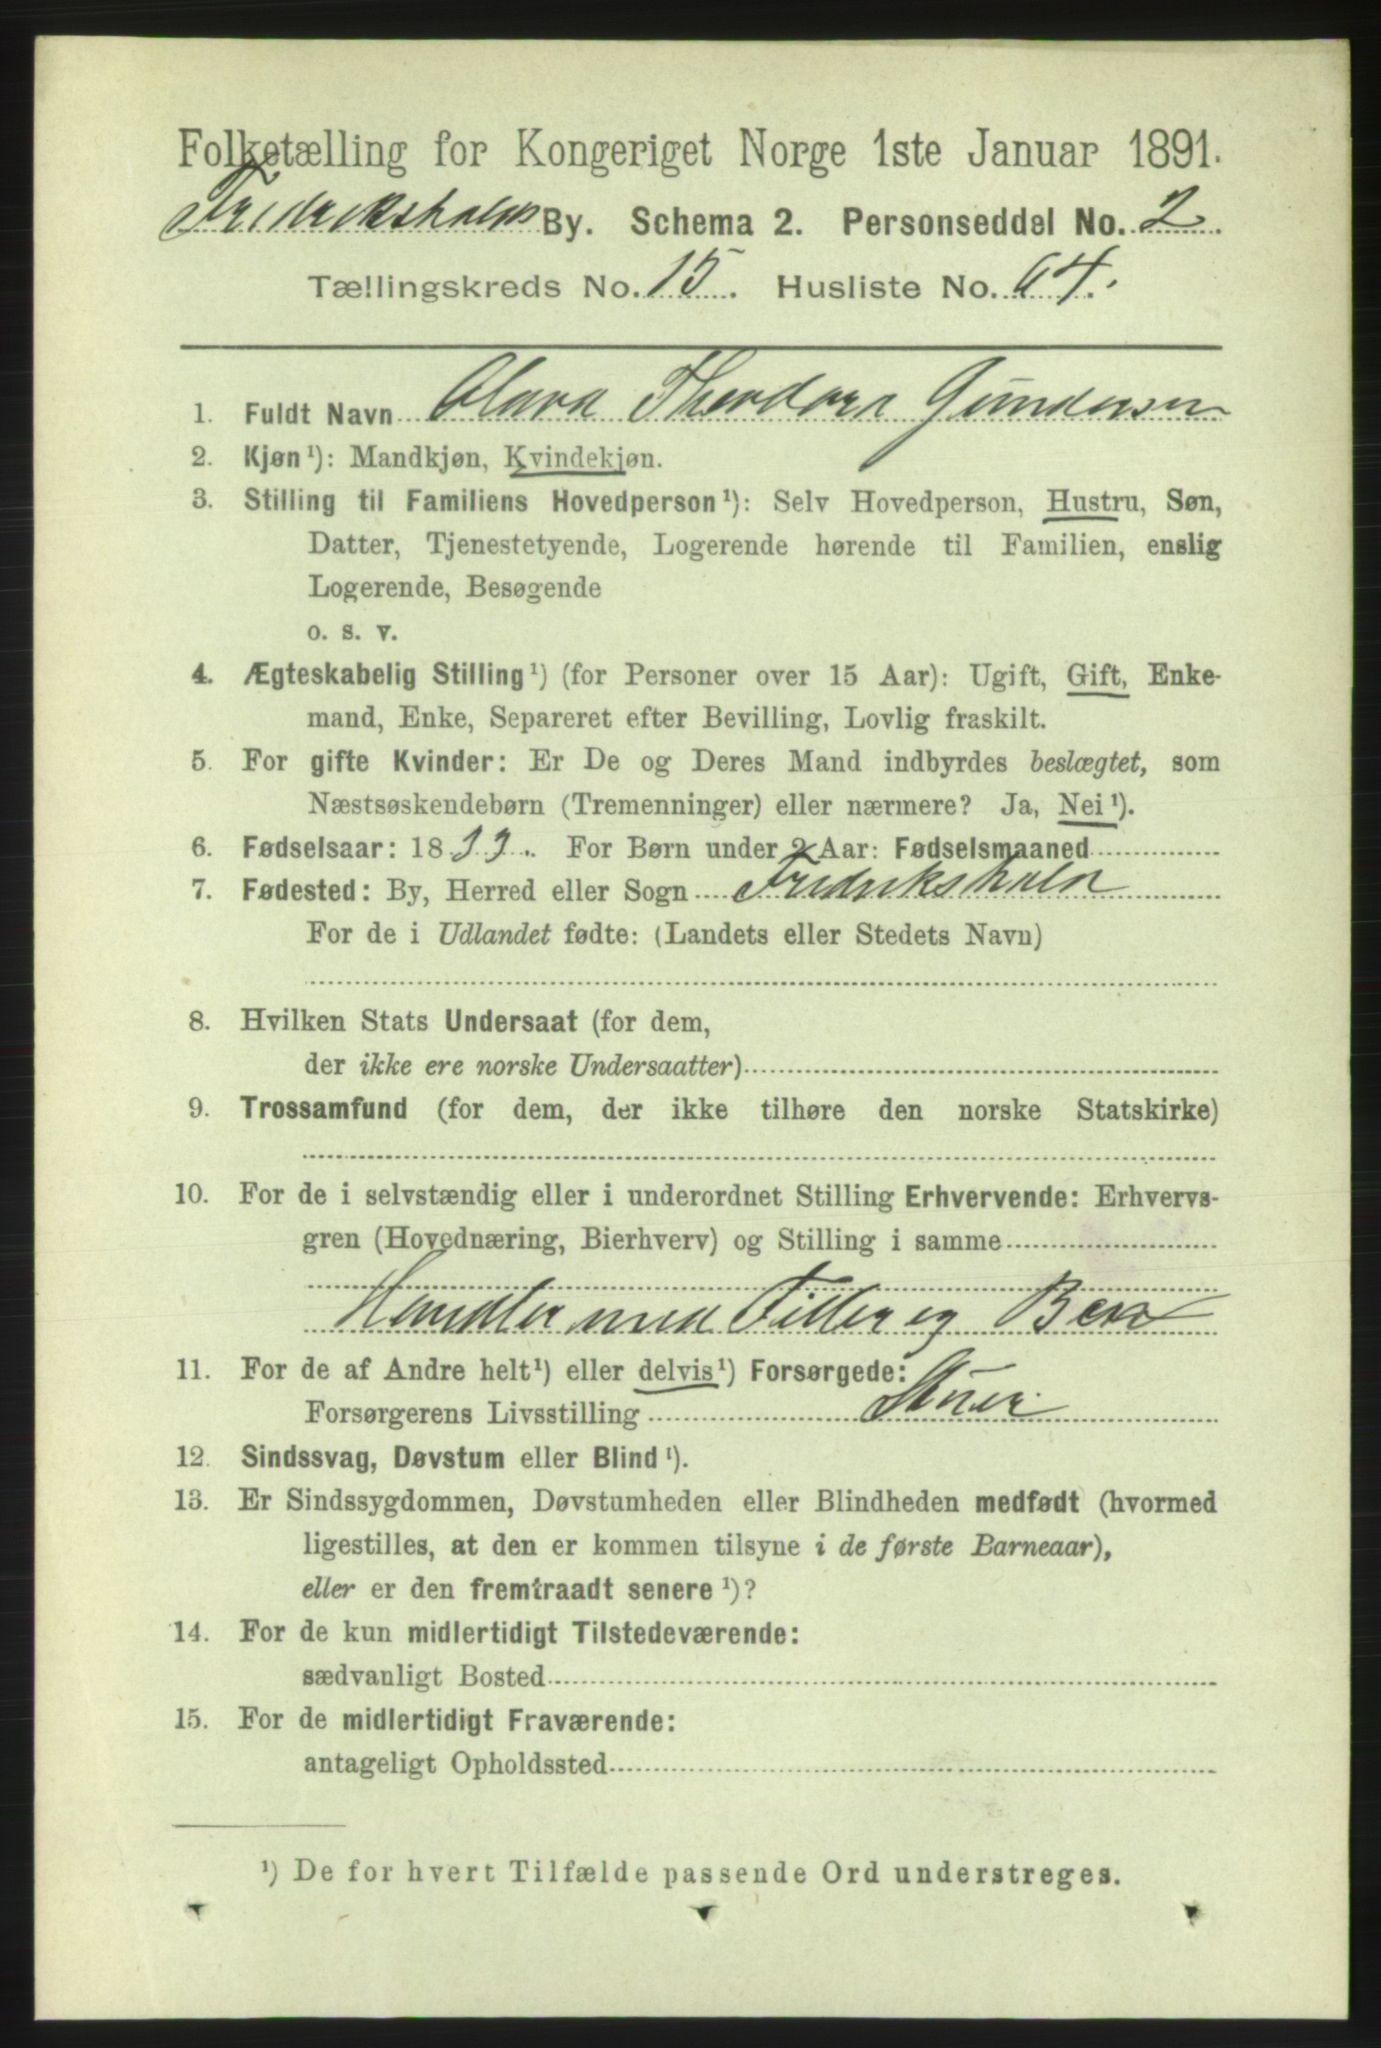 Folketælling for Kongeriget Norge 1ste Januar 1891.
Fredrikshalds By. Schema 2. Personseddel No. 2
Tællingskreds No. 15. Husliste No. 64.
1. Fuldt Navn Clara Theodora Gundersen
2. Kjøn ¹): Mandkjøn, Kvindekjøn.
3. Stilling til Familiens Hovedperson ¹): Selv Hovedperson, Hustru, Søn,
Datter, Tjenestetyende, Logerende hørende til Familien, enslig
Logerende, Besøgende
o. s. v.
4. Ægteskabelig Stilling ¹) (for Personer over 15 Aar): Ugift, Gift, Enke-
mand, Enke, Separeret efter Bevilling, Lovlig fraskilt.
5. For gifte Kvinder: Er De og Deres Mand indbyrdes beslægtet, som
Næstsøskendebørn (Tremenninger) eller nærmere? Ja, Nei ¹).
6. Fødselsaar: 1833. For Børn under 2 Aar: Fødselsmaaned
7. Fødested: By, Herred eller Sogn Fredrikshald
For de i Udlandet fødte: (Landets eller Stedets Navn)
8. Hvilken Stats Undersaat (for dem,
der ikke ere norske Undersaatter)
9. Trossamfund (for dem, der ikke tilhøre den norske Statskirke)
10. For de i selvstændig eller i underordnet Stilling Erhvervende: Erhvervs-
gren (Hovednæring, Bierhverv) og Stilling i samme
Handler med Filler og Ben
11. For de af Andre helt ¹) eller delvis ¹) Forsørgede:
Forsørgerens Livsstilling Stuer.
12. Sindssvag, Døvstum eller Blind ¹).
13. Er Sindssygdommen, Døvstumheden eller Blindheden medfødt (hvormed
ligestilles, at den er kommen tilsyne i de første Barneaar),
eller er den fremtraadt senere ¹)?
14. For de kun midlertidigt Tilstedeværende:
sædvanligt Bosted
15. For de midlertidigt Fraværende:
antageligt Opholdssted
¹) De for hvert Tilfælde passende Ord understreges.